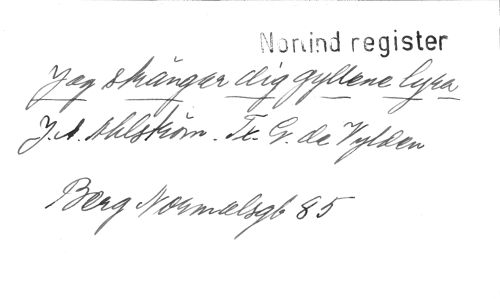 Norlind register
Jag stränger dig gyllene lyra
J. A. Ahlström. Tx. G. de Vylder
Berg Normalsgb 85